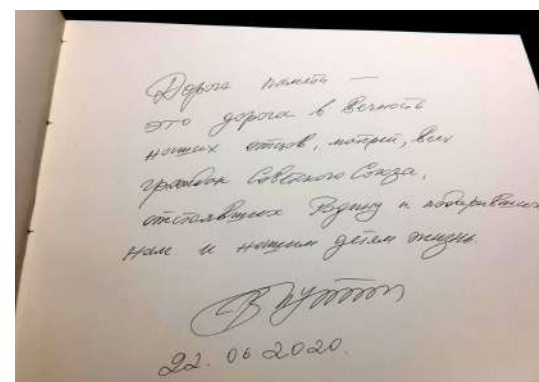 Дорога памяти —
это дорога в вечность
наших отцов, матерей, всех
граждан Советского Союза,
отстоявших Родину и подаривших
нам и нашим детям жизнь.
В Путин
22. 06 2020.